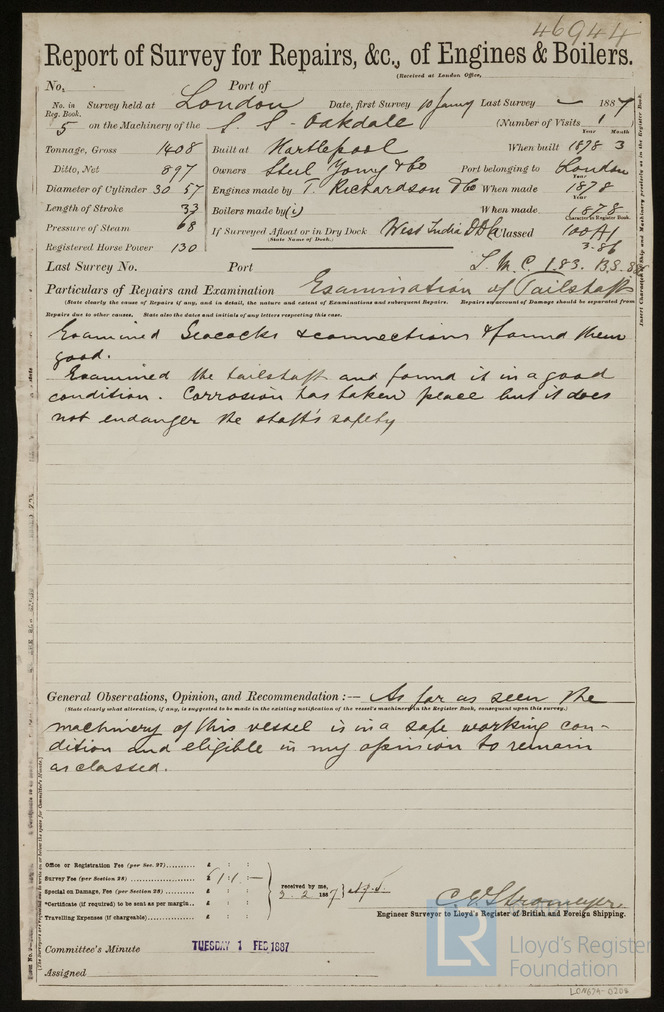 46944
Report of Survey for Repairs, &c., of Engines & Boilers.
(Received at London Office,
No. Port of
No. in Reg. Book. Survey held at London Date, first Survey 10 Jany Last Survey — 1887
5 on the Machinery of the S. S. Oakdale (Number of Visits 1)
Tonnage, Gross 1408 Built at Hartlepool When built Year 1878 Month 3
Ditto, Net 897 Owners Steel Young & Co Port belonging to London
Diameter of Cylinder 30 57 Engines made by T. Richardson & Co When made Year 1878
Length of Stroke 33 Boilers made by (i) When made Year 1878
Pressure of Steam 68 If Surveyed Afloat or in Dry Dock West India DD Classed Character in Register Book. 100A1
(State Name of Dock.) 3.86
Registered Horse Power 130
Last Survey No. Port L. M. C. 1.83. B.S.
Particulars of Repairs and Examination Examination of Tailshaft
(State clearly the cause of Repairs if any, and in detail, the nature and extent of Examinations and subsequent Repairs. Repairs on account of Damage should be separated from
Repairs due to other causes. State also the dates and initials of any letters respecting this case.
Examined Seacocks & connections & found them
good.
Examined the tailshaft and found it in a good
condition. Corrosion has taken place but it does
not endanger the shaft's safety
General Observations, Opinion, and Recommendation :— As far as seen the
(State clearly what alteration, if any, is suggested to be made in the existing notification of the vessel's machinery in the Register Book, consequent upon this survey.)
machinery of this vessel is in a safe working con-
dition and eligible in my opinion to remain
as classed.
Office or Registration Fee (per Sec. 27) £ : :
Survey Fee (per Section 28) £ 1 : 1 : —
Special on Damage, Fee (per Section 28) £ : : received by me, 3.2.1887
*Certificate (if required) to be sent as per margin £ : :
Travelling Expenses (if chargeable) £ : :
C. E. Stromeyer
Engineer Surveyor to Lloyd's Register of British and Foreign Shipping.
Committee's Minute TUESDAY 1 FEB 1887
Assigned
LR Lloyd's Register
Foundation
LON674-0208